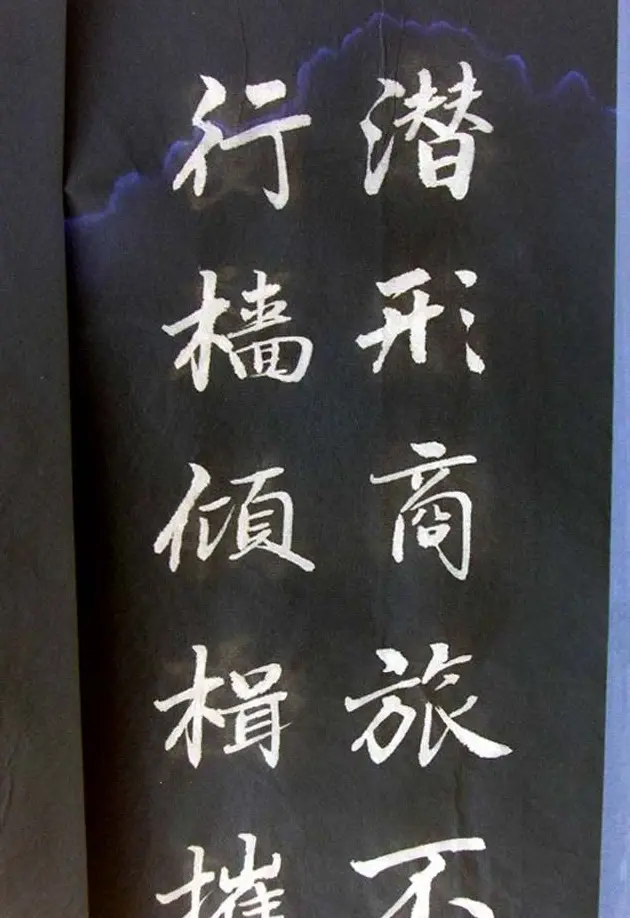 潜形商旅不
行檣傾楫摧